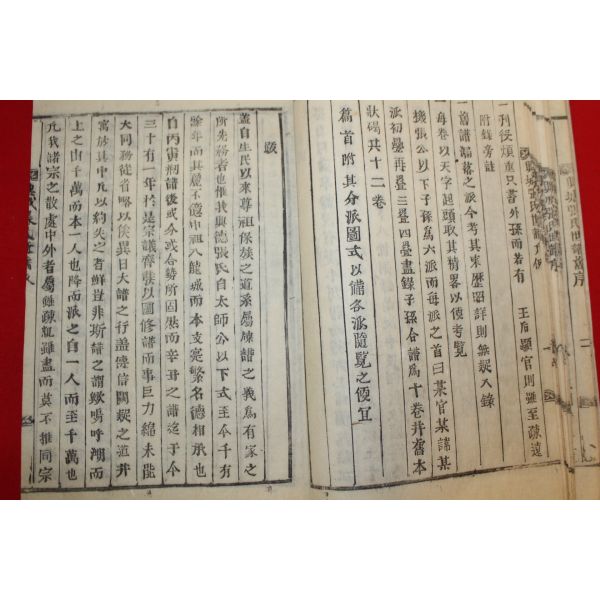 一刊役煩重只書外孫而若有 王后顯官則雖至疎遠
附錄旁註
一舊譜漏落之派今考其來歷昭詳則無疑入錄
一每卷以天字起頭取其精畧以便考覧
機張公以下子孫爲六派而每派之首曰某官某諱某
派初疊再疊三疊四疊盡錄子孫合譜爲十卷幷舊本
狀碣共十二卷
篇首附其分派圖式以備各派隨覽之便宜
跋
盖自生民以來尊祖保族之道系屬煉譜之義爲有家之
所先務者也惟我興德張氏自太師公以下式至今千有
餘年而其麗不億中祖入龍城而本支寔繁名德相承也
自丙寅刱譜後或分或合勢所固然而辛丑之譜迄于今
三十有一年於是宗議齊發以圖修譜而事巨力綿未能
大同務從省略以俟異日大譜之行盖傳信闕疑之道幷
寓於其中凡以約失之者鮮豈非斯譜之謂歟嗚呼溯而
上之由千萬而本一人也降而派之自一人而至千萬也
凡我諸宗之散處中外者屬雖疎親雖盡而莫不推同宗